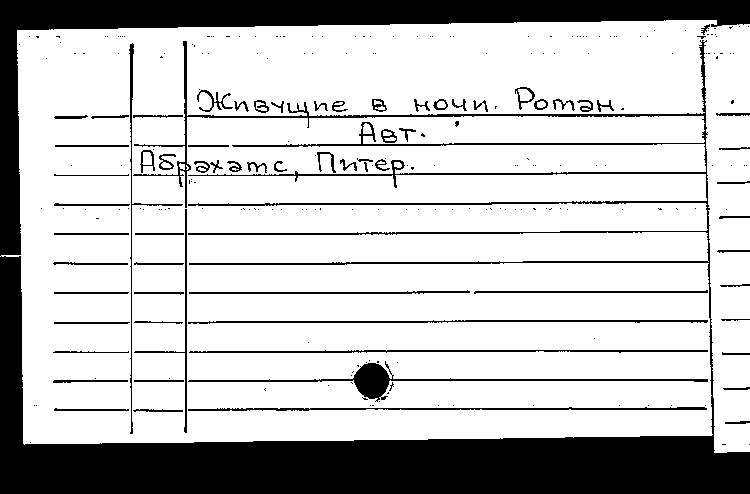 Живущие в ночи. Роман.
Авт.
Абрахамс, Питер.